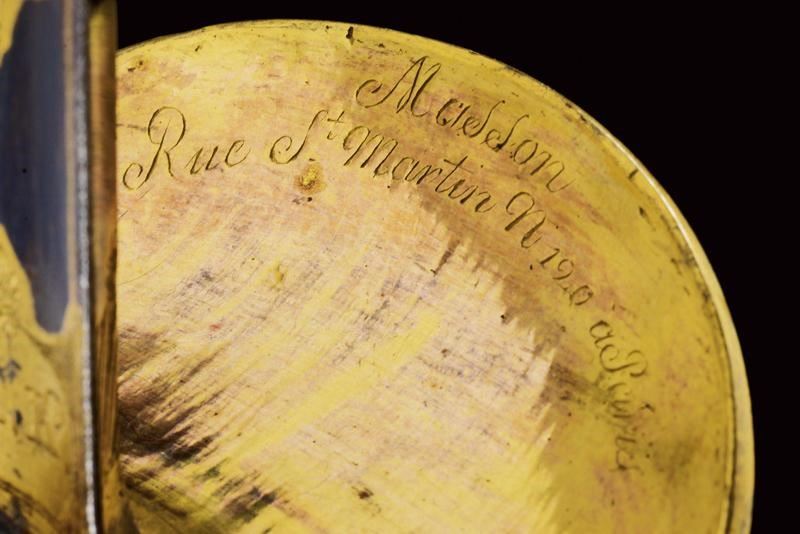 Masson
Rue St Martin N 120 a Paris